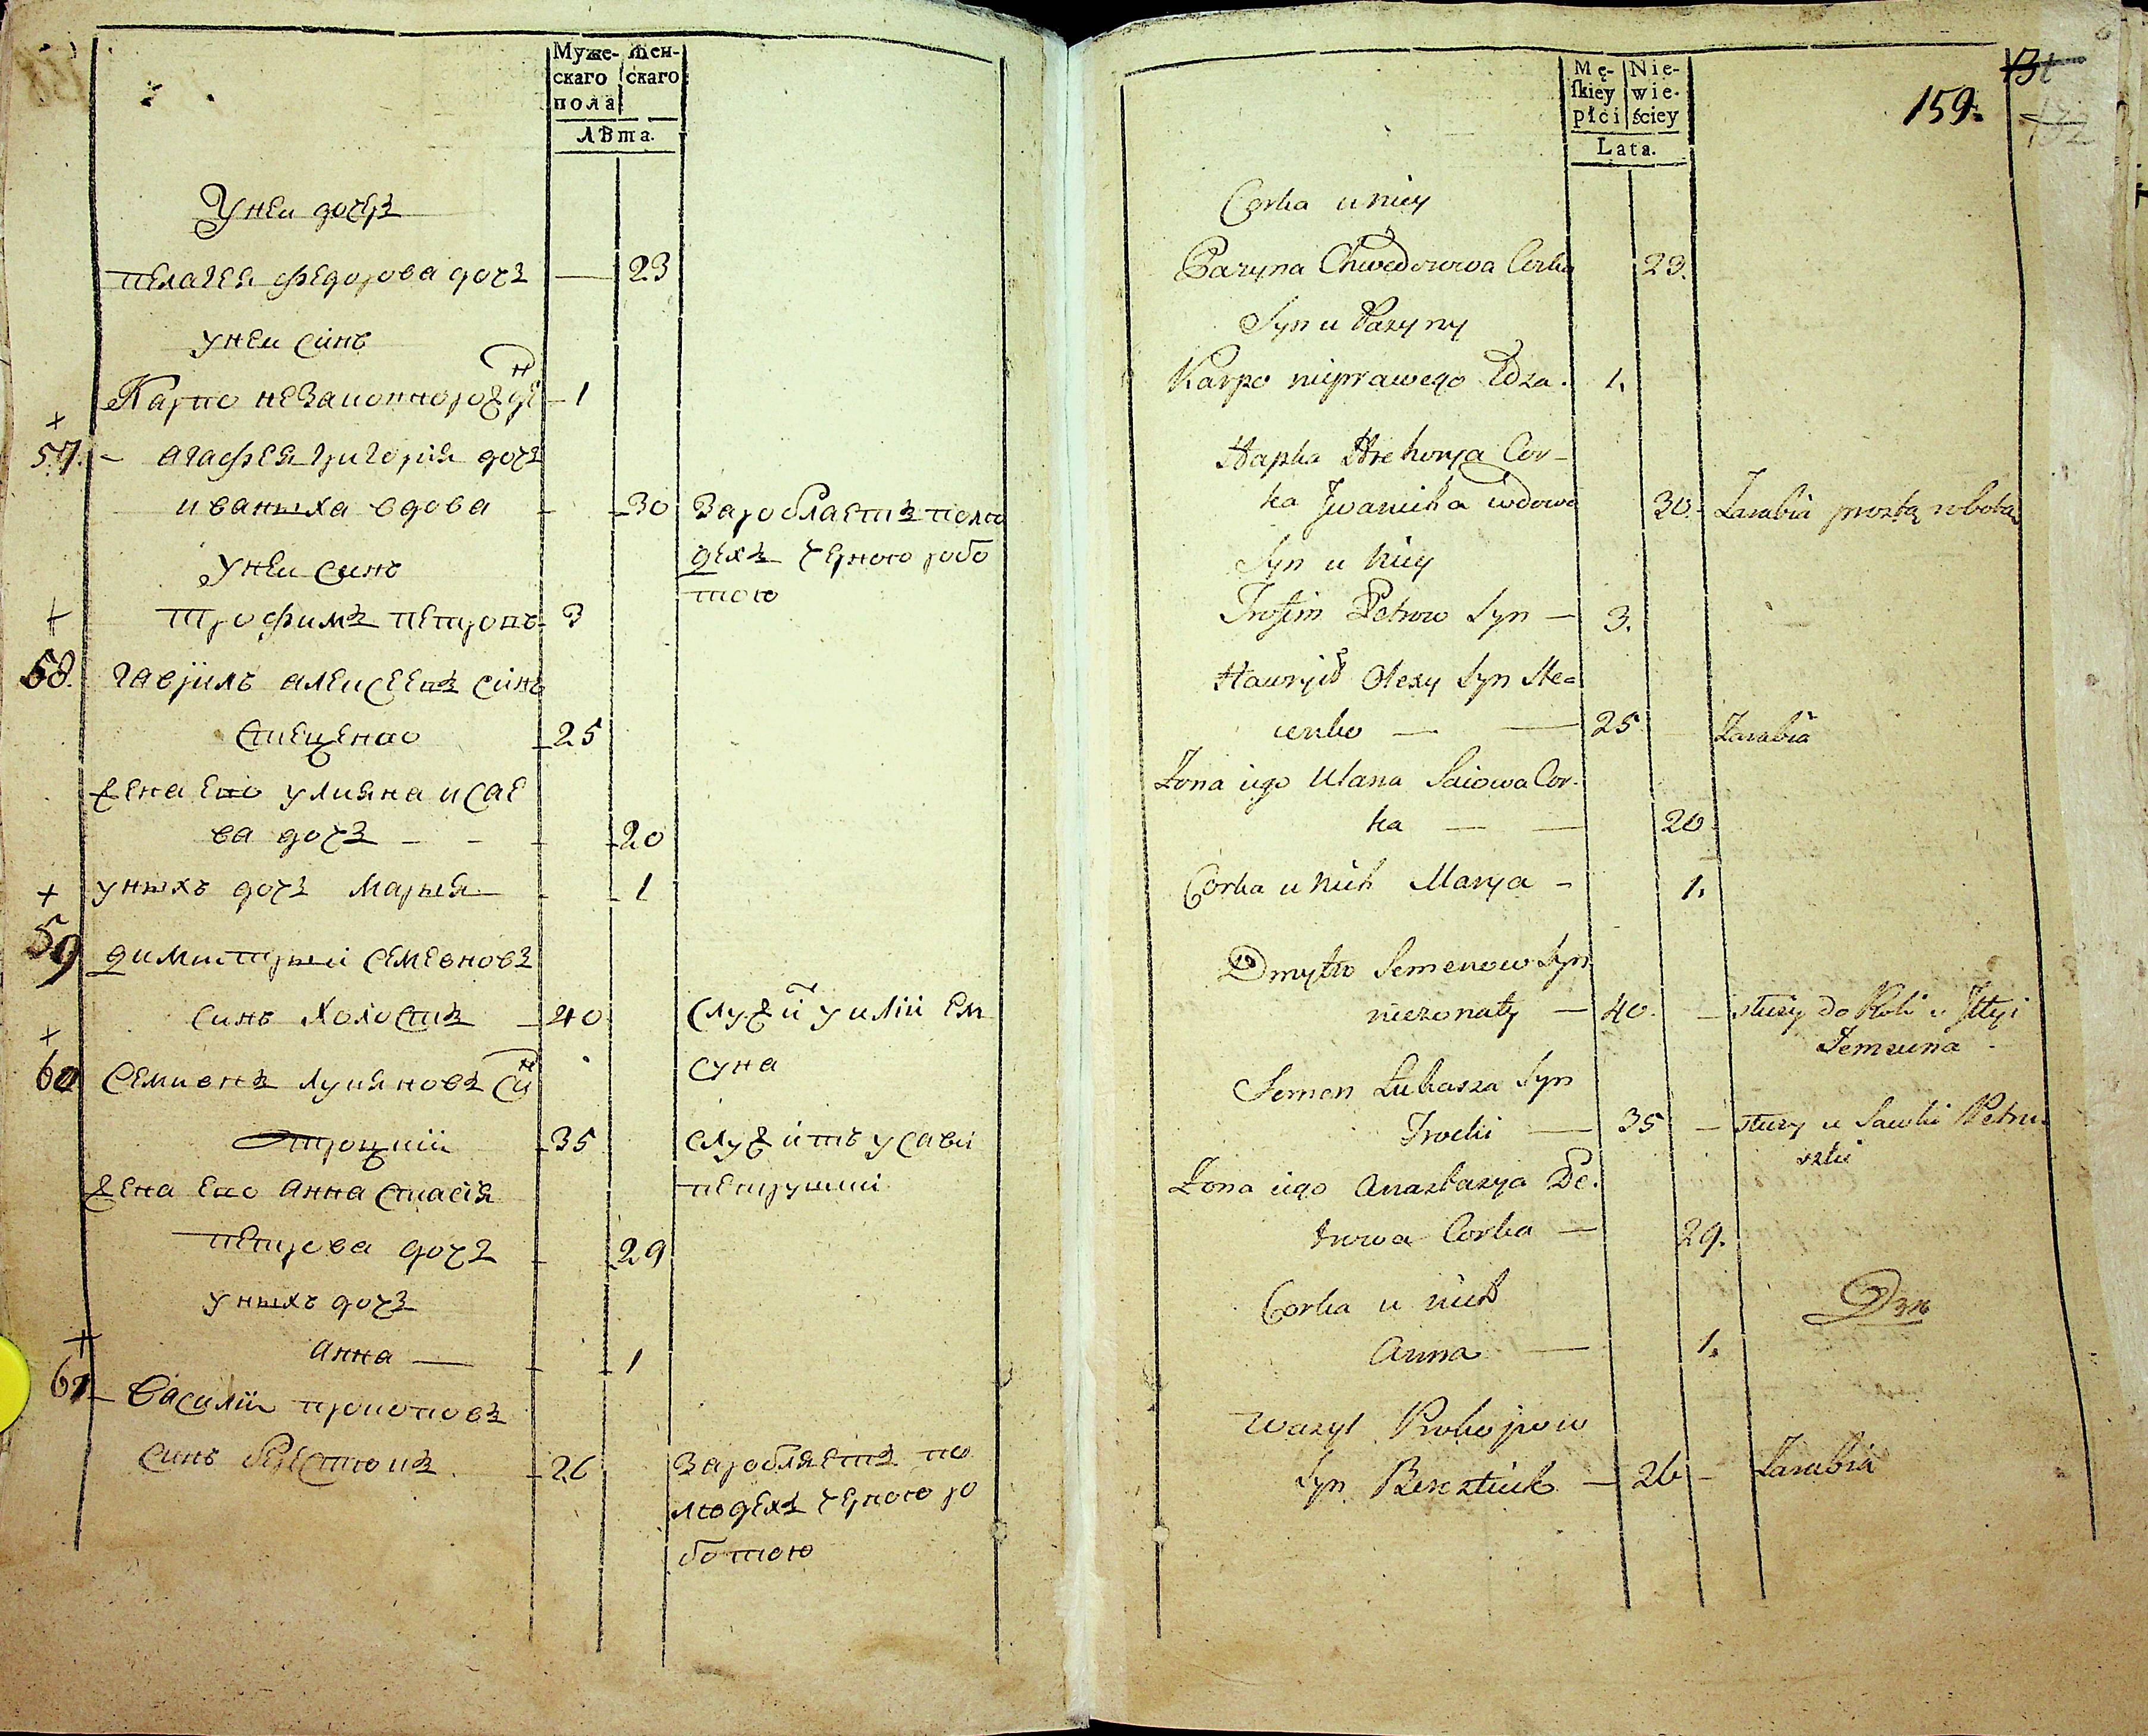 Муже- Жен-
скаго скаго
пола
лѣта.
У неи дочъ
пелагея федорова дочъ — 23
у неи синъ
Карпо незаконнорожден 1
57. агафея григорія дочъ
иваниха вдова 30 Заробляетъ по лю
дехъ черною робо
тою
У неи синъ
трофимъ петровъ 3
58. гаврилъ алексеевъ синъ
стеценко 25
жена его улияна исае
ва дочъ 20
у нихъ дочъ Марыя 1
59 димитрыи семеновъ
синъ холостъ 40 служит у илїи ем
суна
60 семионъ лукяновъ син
троцкїи 35 служитъ у савки
петрушки
жена его аннастасїя
петрова дочъ 29
у нихъ дочъ
анна — 1
61 василїи прокоповъ
синъ берестюкъ 26 заробляетъ по
людехъ черною ро
ботою
Mę- Nie-
skiey wie-
płci ściey
Lata.
159.
132
Corka u niey
Pazyna Chwedorowa Corka 23.
Syn u Pazyny
Karpo nieprawego łoża. 1.
Hapka Hrehorja Cor-
ka Jwanicha wdowa 30. Zarabia prostą robotą
Syn u niey
Trofim Petrow Syn — 3.
Hawryił Olexy Syn Ste-
cenko — — 25. Zarabia
Żona iego Ulana Saiowa Cor-
ka — — 20.
Corka u nich Marya - 1.
Dmytro Semenow Syn
nieżonaty — 40. — służy do Roli u Illyi
Jemsuna
Semen Łukasza Syn
Trocki — 35 — służy u Sawki Petru-
szki
Żona iego Anastazya Pe-
trowa Corka — 29.
Corka u nich
Anna — 1.
Wazyl Prokopow
Syn Beresztiuk — 26 — Zarabia